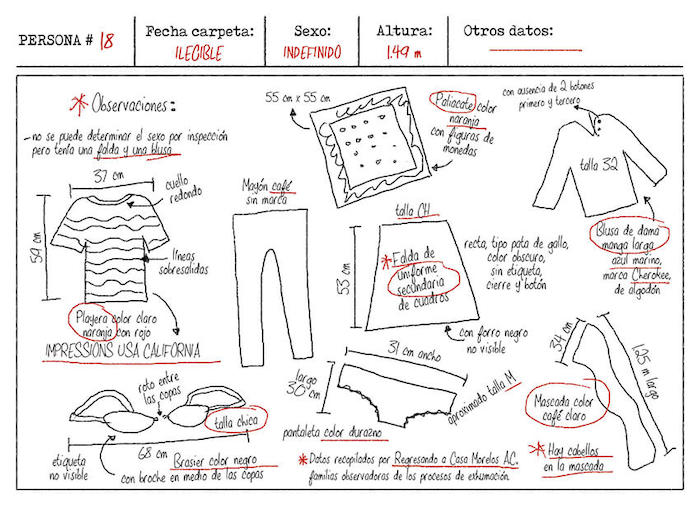 PERSONA # 18
Fecha carpeta:
ILEGIBLE
Sexo:
INDEFINIDO
Altura:
1.49 m
Otros datos:
* Observaciones:
- no se puede determinar el sexo por inspección
pero tenía una falda y una blusa
37 cm
cuello
redondo
59 cm
líneas
sobresalidas
Playera color claro
naranja con rojo
IMPRESSIONS USA CALIFORNIA
Mayón café
sin marca
55 cm x 55 cm
Paliacate color
naranja
con figuras de
monedas
con ausencia de 2 botones
primero y tercero
talla 32
Blusa de dama
manga larga
azul marino,
marca Cherokee,
de algodón
talla CH
53 cm
* Falda de
uniforme
secundaria
de cuadros
recta, tipo pata de gallo,
color obscuro,
sin etiqueta,
cierre y botón
con forro negro
no visible
roto entre
las copas
talla chica
68 cm
etiqueta
no visible
Brasier color negro
con broche en medio de las copas
31 cm ancho
largo
30 cm
aproximado talla M
pantaleta color durazno
34 cm
1.25 m largo
Mascada color
café claro
* Hay cabellos
en la mascada
* Datos recopilados por Regresando a Casa Morelos AC.
familias observadoras de los procesos de exhumación.